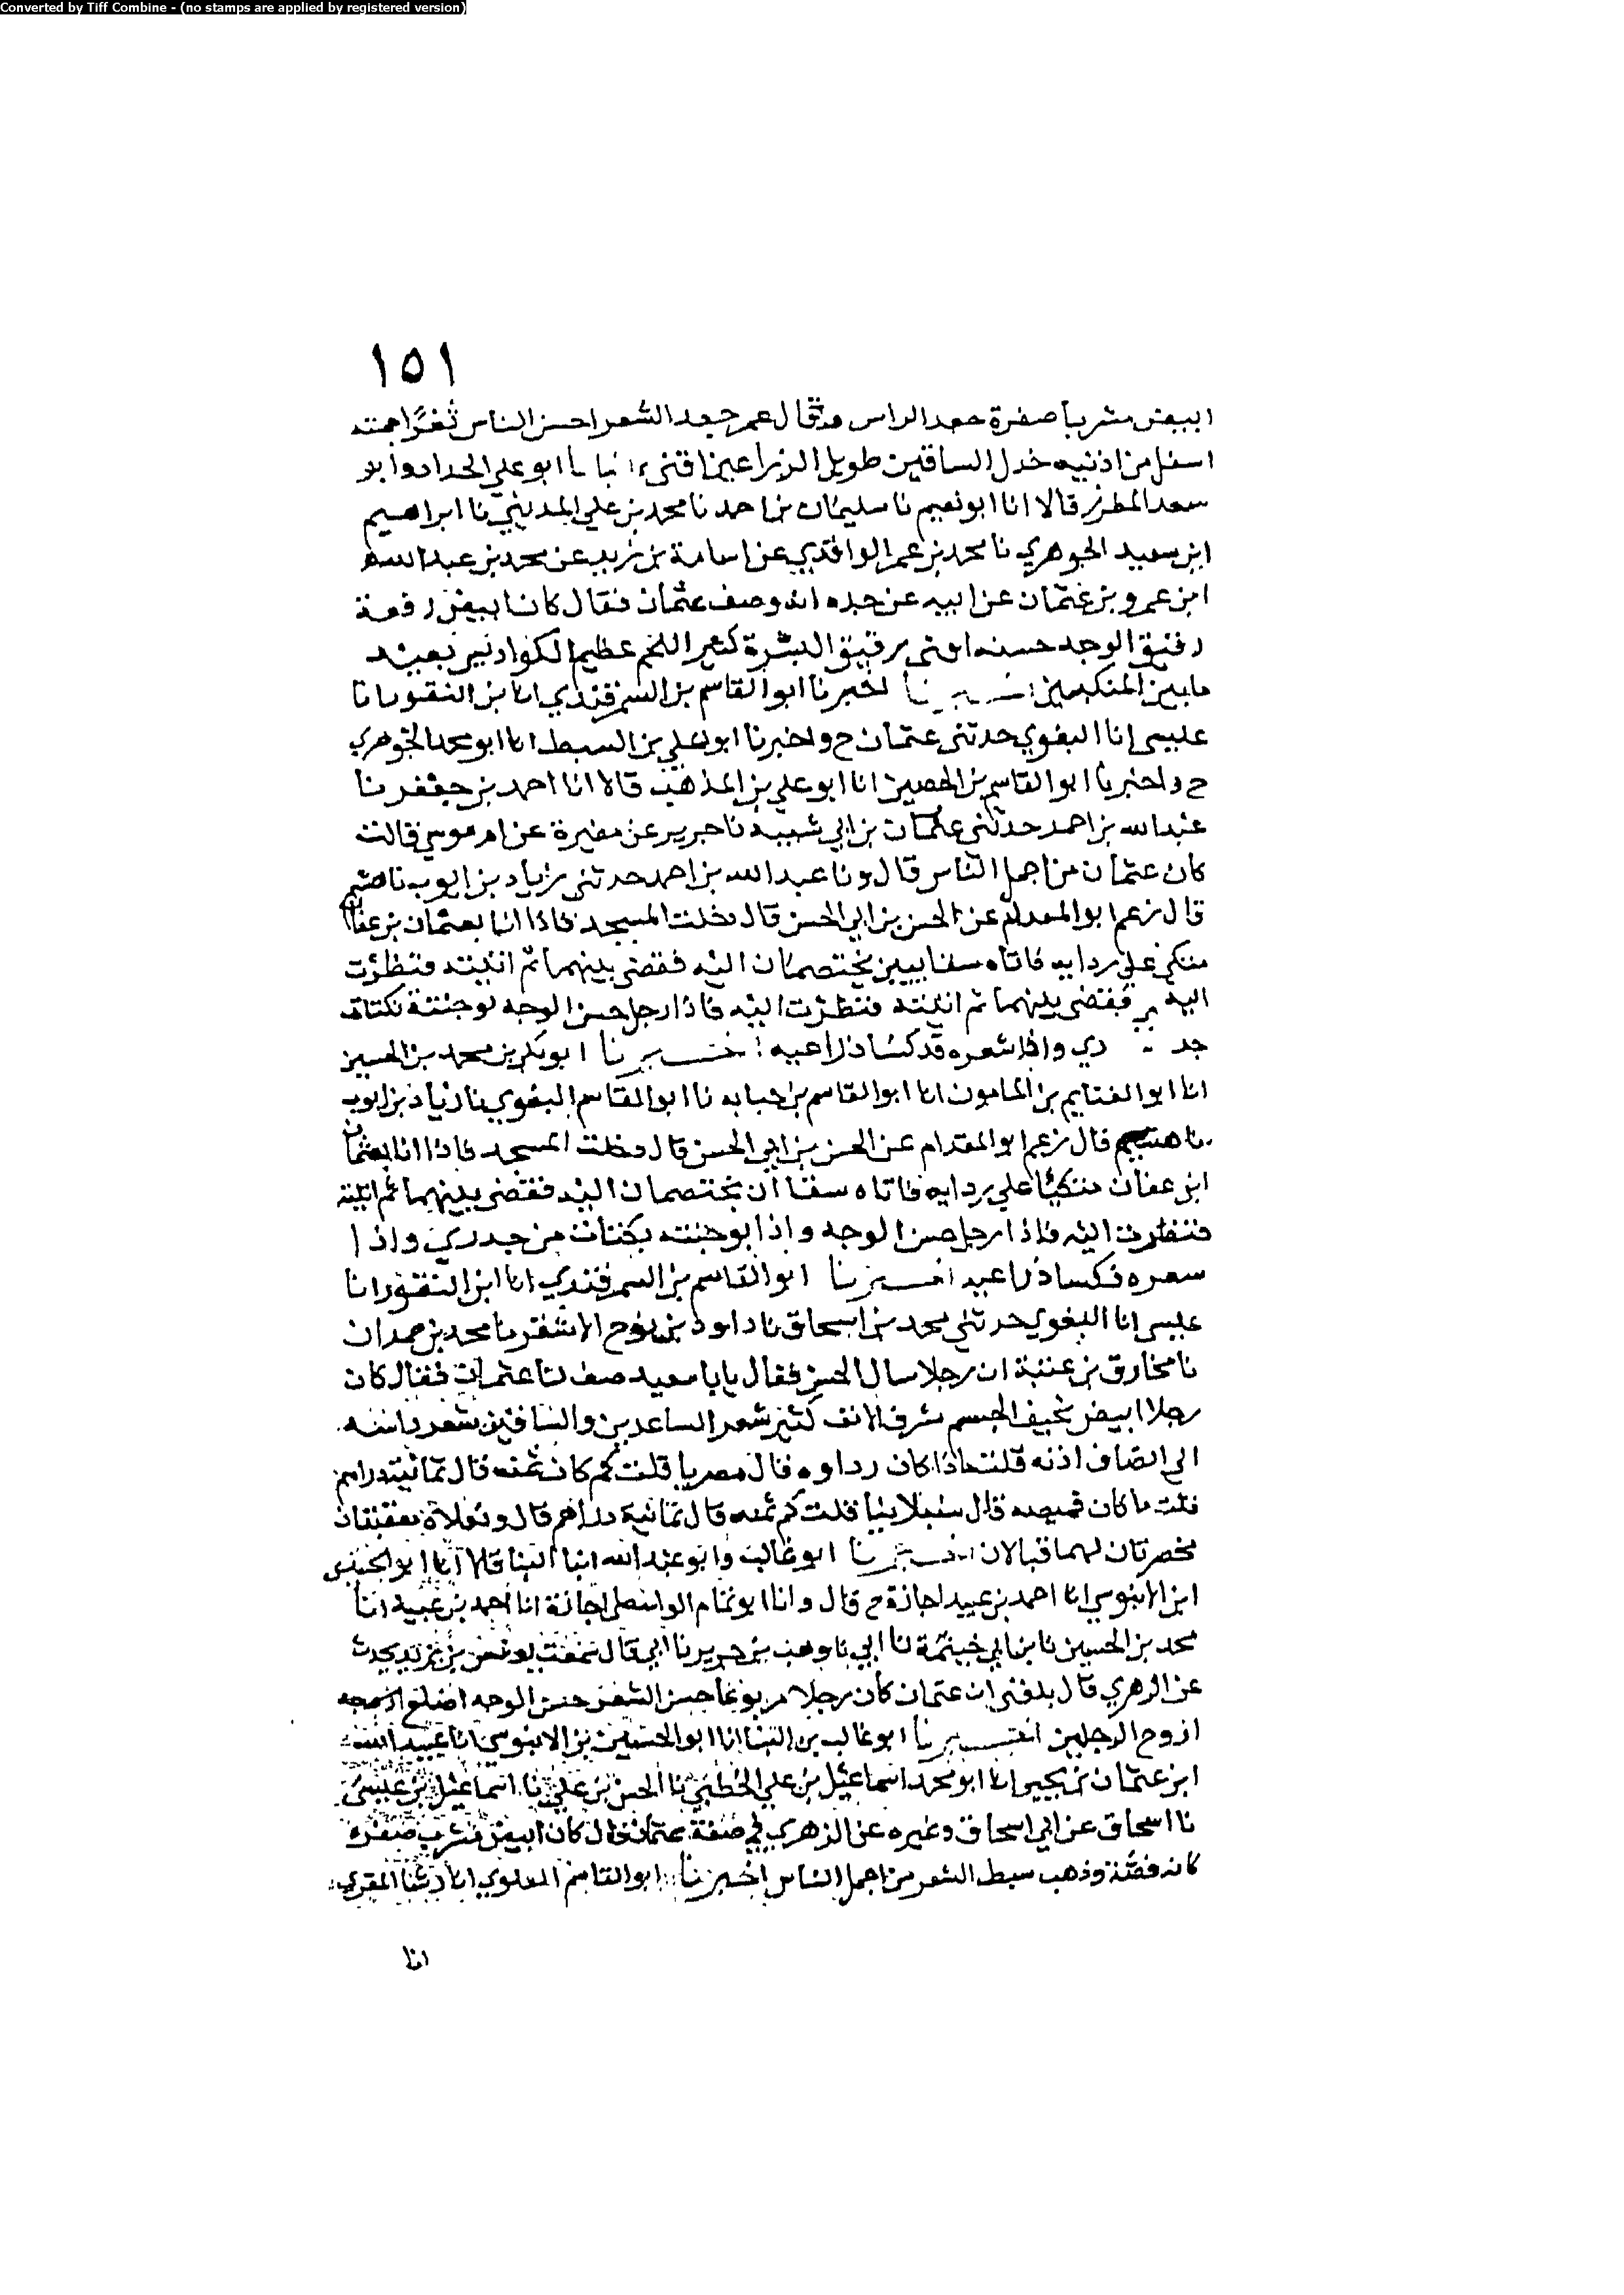 Converted by Tiff Combine - (no stamps are applied by registered version)
١٥١
ابيض مشربا صفرة جعد الراس وقال عمر جعد الشعر احسن الناس ثغرا جمته
اسفل من اذنيه خدل الساقين طويل الذراعين اقنى انبانا ابو علي الحداد وابو
سعد المطرز قالا انا ابو نعيم نا سليمان بن احمد نا محمد بن علي المديني نا ابراهيم
ابن سعيد الجوهري نا محمد بن عمر الواقدي عن اسامة بن زيد عن محمد بن عبد الله
ابن عمرو بن عثمان عن ابيه عن جده انه وصف عثمان فقال كان ابيض ربعة
رقيق الوجه حسنه اقنى رقيق البشرة كثير اللحم عظيم الكراديس بعيد
ما بين المنكبين اخبرنا اخبرنا ابو القاسم بن السمرقندي انا بن النقور انا
عيسى انا البغوي حدثني عثمان ح واخبرنا ابو علي بن السبط انا ابو محمد الجوهري
ح واخبرنا ابو القاسم بن الحصين انا ابو علي بن المذهب قالا انا احمد بن جعفر نا
عبد الله بن احمد حدثني عثمان بن ابي شيبة نا جرير عن مغيرة عن ام موسي قالت
كان عثمان من اجمل الناس قال ونا عبد الله بن احمد حدثني زياد بن ايوب نا هشيم
قال زعم ابو المقدام عن الحسن بن ابي الحسن قال دخلت المسجد فاذا انا بعثمان بن عفان
متكي علي ردايه فاتاه سقايين يختصمان اليه فقضى بينهما ثم اتيته فنظرت
اليه فقضى بينهما ثم اتيته فنظرت اليه فاذا رجل حسن الوجه بوجنته نكتات
جدري واذا شعره قد كسا ذراعيه اخبرنا ابو بكر بن محمد بن الحسين
انا ابو الغنايم بن المامون انا ابو القاسم بن حبابه نا ابو القاسم البغوي نا زياد بن ايوب
نا هشيم قال زعم ابو المقدام عن الحسن بن ابي الحسن قال دخلت المسجد فاذا انا بعثمان
ابن عفان متكيا علي ردايه فاتاه سقاان يختصمان اليه فقضى بينهما ثم اتيته
فنظرت اليه فاذا رجل حسن الوجه واذا بوجنته نكتات من جدري واذا
شعره قد كسا ذراعيه اخبرنا ابو القاسم بن السمرقندي انا ابن النقور انا
عيسى انا البغوي حدثني محمد بن اسحاق نا داود بن نوح الاشقر نا محمد بن حمدان
نا مخارق بن عنبة ان رجلا سال الحسن فقال يابا سعيد صف لنا عثمان فقال كان
رجلا ابيض نحيف الجسم مشرف الانف كثير شعر الساعدين والساقين شعر راسه
الى انصاف اذنه قلت ماذا كان رداوه قال مصريا قلت كم كان ثمنه قال ثمانية دراهم
قلت ما كان قميصه قال سنبلانيا قلت كم ثمنه قال ثمانية دراهم قال ونعلاه معقبتان
مخصرتان لهما قبالان اخبرنا ابو غالب وابو عبد الله ابنا البنا قالا انا ابو الحسين
ابن الابنوسي انا احمد بن عبيد اجازة ح قال وانا ابو تمام الواسطي اجازة انا احمد بن عبيد انا
محمد بن الحسين نا بن ابي خيثمة نا ابي نا وهب بن جرير نا ابي قال سمعت يونس بن يزيد يحدث
عن الزهري قال بلغني ان عثمان كان رجلا مربوعا حسن الشعر حسن الوجه اضلع
اروح الرجلين اخبرنا ابو غالب بن البنا انا ابو الحسين بن الابنوسي انا عبيد الله
ابن عثمان بن يحيى انا ابو محمد اسماعيل بن علي الخطبي نا الحسن بن علي نا اسماعيل بن عيسى
نا اسحاق عن ابي اسحاق وغيره عن الزهري في صفة عثمان قال كان ابيض مشرب صفرة
كانه فضة وذهب سبط الشعر من اجمل الناس اخبرنا ابو القاسم العلوي انا رشا المقري
انا